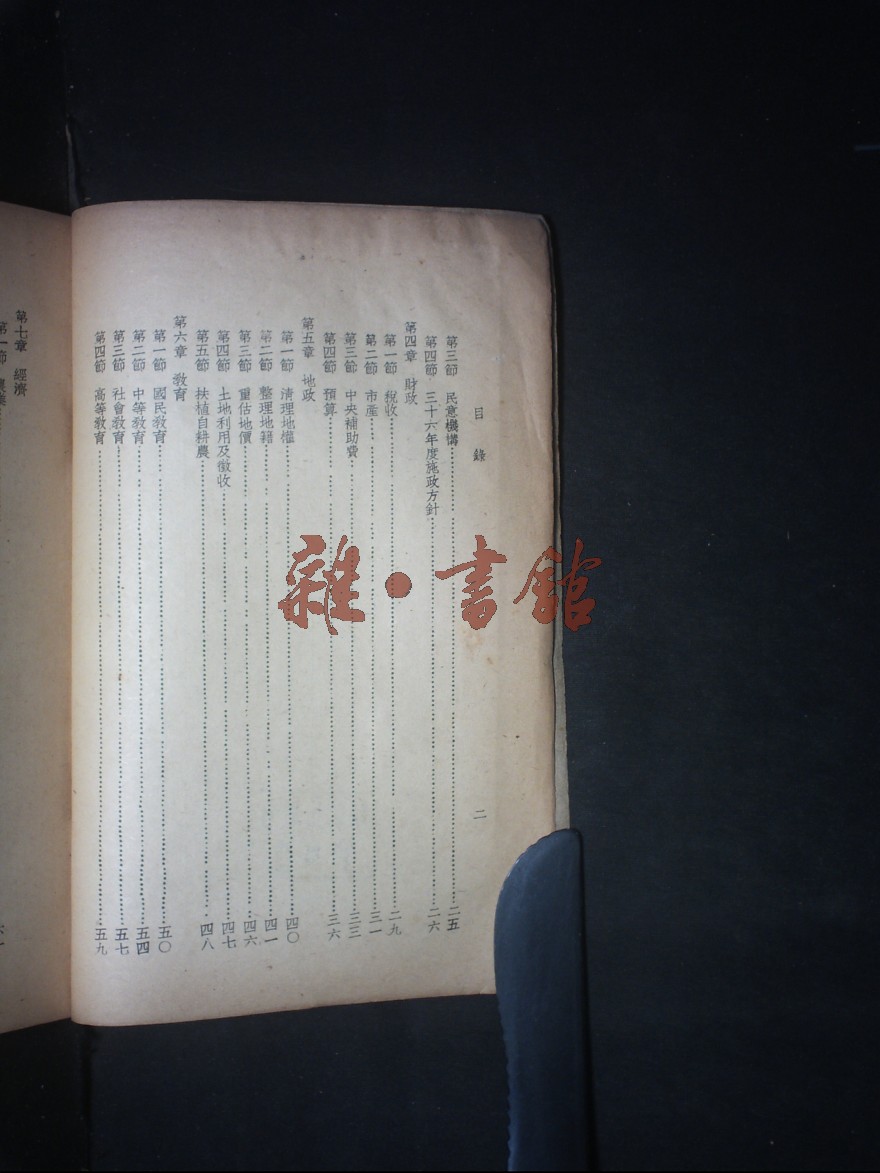 目錄
二
第三節 民意機構⋯⋯二五
第四節 三十六年度施政方針⋯⋯二六
第四章 財政
第一節 稅收⋯⋯二九
第二節 市產⋯⋯三一
第三節 中央補助費⋯⋯三三
第四節 預算⋯⋯三六
第五章 地政
第一節 清理地權⋯⋯四〇
第二節 整理地籍⋯⋯四一
第三節 重估地價⋯⋯四六
第四節 土地利用及徵收⋯⋯四七
第五節 扶植自耕農⋯⋯四八
第六章 教育
第一節 國民教育⋯⋯五〇
第二節 中等教育⋯⋯五四
第三節 社會教育⋯⋯五七
第四節 高等教育⋯⋯五九
第七章 經濟
第一節
雜·書館